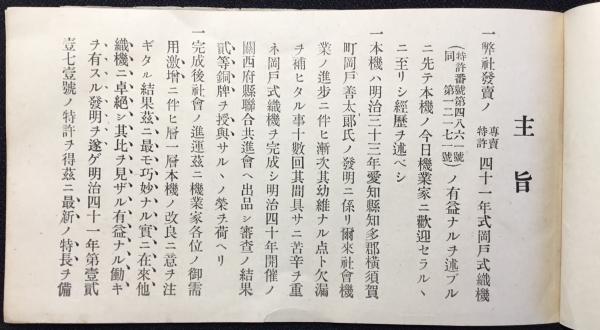 主旨
一弊社發賣ノ專賣特許四十一年式岡戸式織機
(特許番號第四八六一號同第一二一七一號)ノ有益ナルヲ述ブル
ニ先テ本機ノ今日機業家ニ歡迎セラルヽ
ニ至リシ經歷ヲ述ベシ
一本機ハ明治三十三年愛知縣知多郡橫須賀
町岡戸善太郎氏ノ發明ニ係リ爾來社會機
業ノ進步ニ伴ヒ漸次其幼維ナル点ト欠漏
ヲ補ヒタル事十數回其間具サニ苦辛ヲ重
ネ岡戸式織機ヲ完成シ明治四十年開催ノ
關西府縣聯合共進會ヘ出品シ審査ノ結果
貳等銅牌ヲ授與サルヽノ榮ヲ荷ヘリ
一完成後社會ノ進運茲ニ機業家各位ノ御需
用激增ニ伴ヒ層一層本機ノ改良ニ意ヲ注
ギタル結果茲ニ最モ巧妙ナル實ニ在來他
織機ニ卓絕シ其比ヲ見ザル有益ナル働キ
ヲ有スル發明ヲ遂ゲ明治四十一年第壹貳
壹七壹號ノ特許ヲ得茲ニ最新ノ特長ヲ備